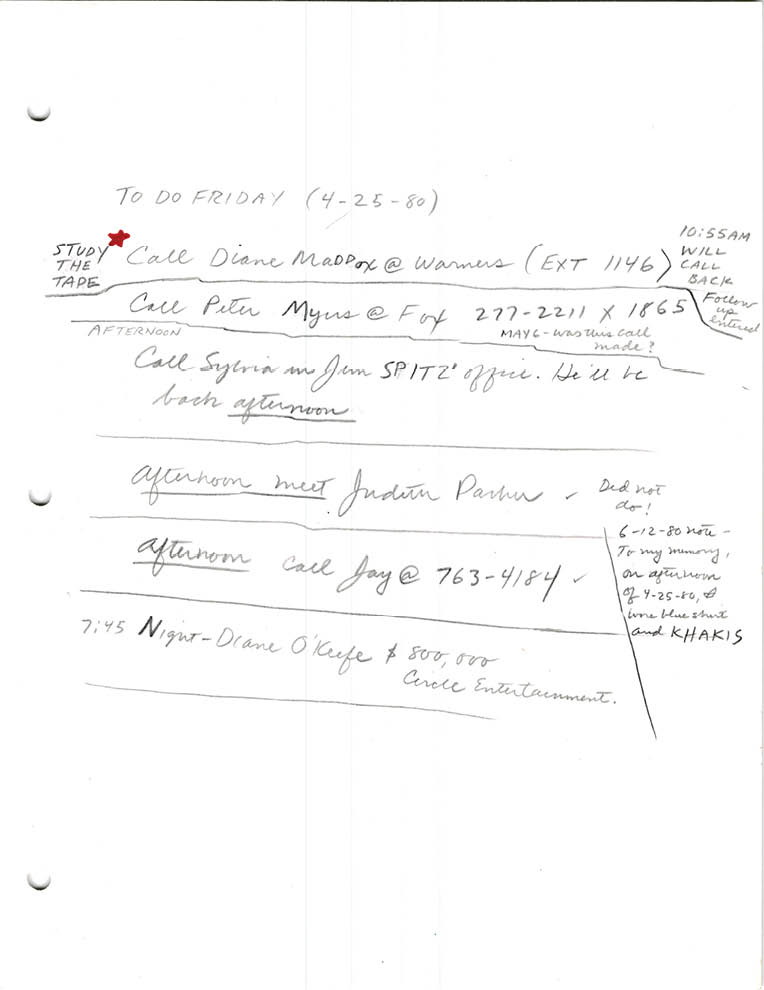 TO DO FRIDAY (4-25-80)
STUDY
THE
TAPE
Call Diane MaDDox @ Warners (EXT 1146)
10:55AM
WILL
CALL
BACK
Call Peter Myers @ Fox 277-2211 X 1865
Follow
up
entered
AFTERNOON
MAY 6 - was this call
made?
Call Sylvia in Jim SPITZ' office. He'll be
back afternoon
afternoon meet Judith Parker ✓
Did not
do!
afternoon Call Jay @ 763-4184 ✓
6-12-80 note -
To my memory,
on afternoon
of 4-25-80, I
wore blue shirt
and KHAKIS
7:45 Night - Diane O'Keefe $800,000
Circle Entertainment.